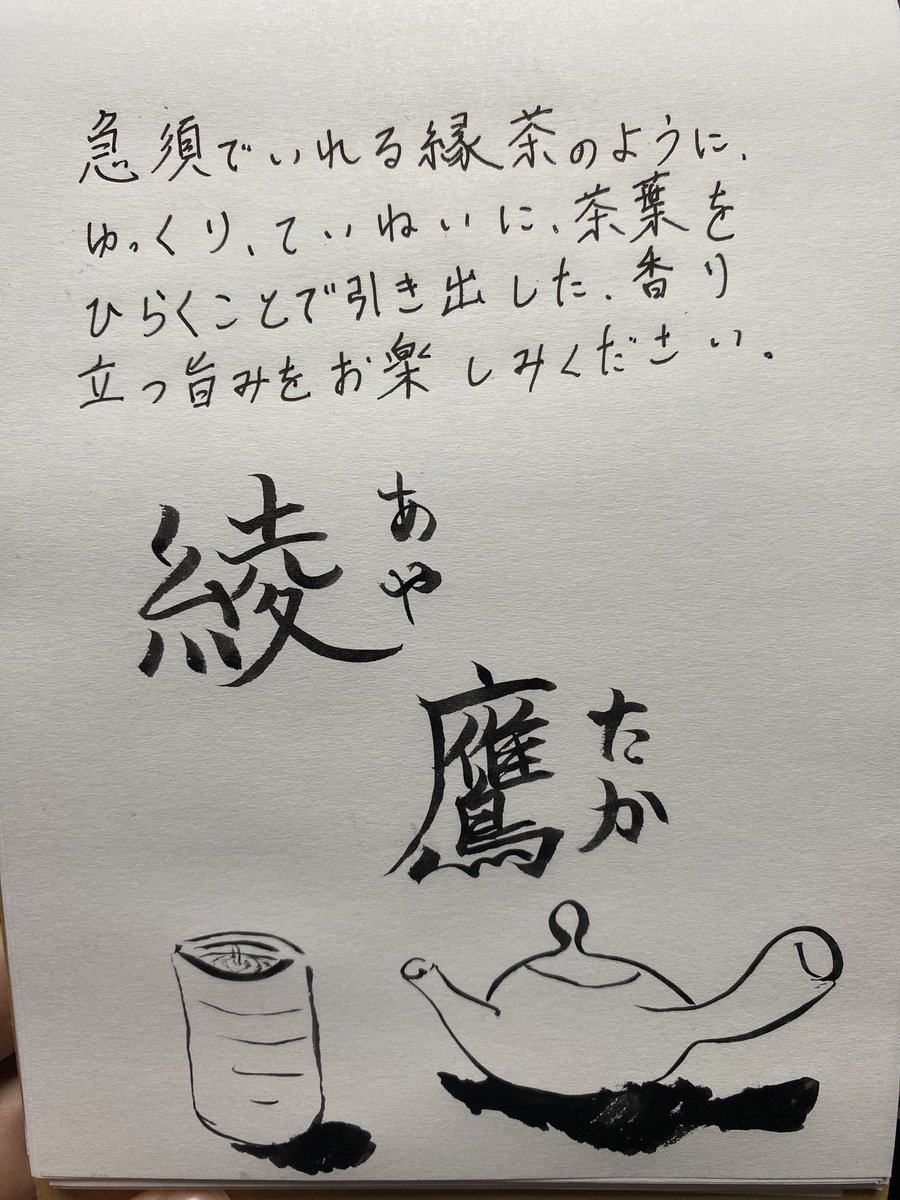 急須でいれる縁茶のように、
ゆっくり、ていねいに、茶葉を
ひらくことで引き出した、香り
立つ旨みをお楽しみください。
綾
あや
鷹
たか